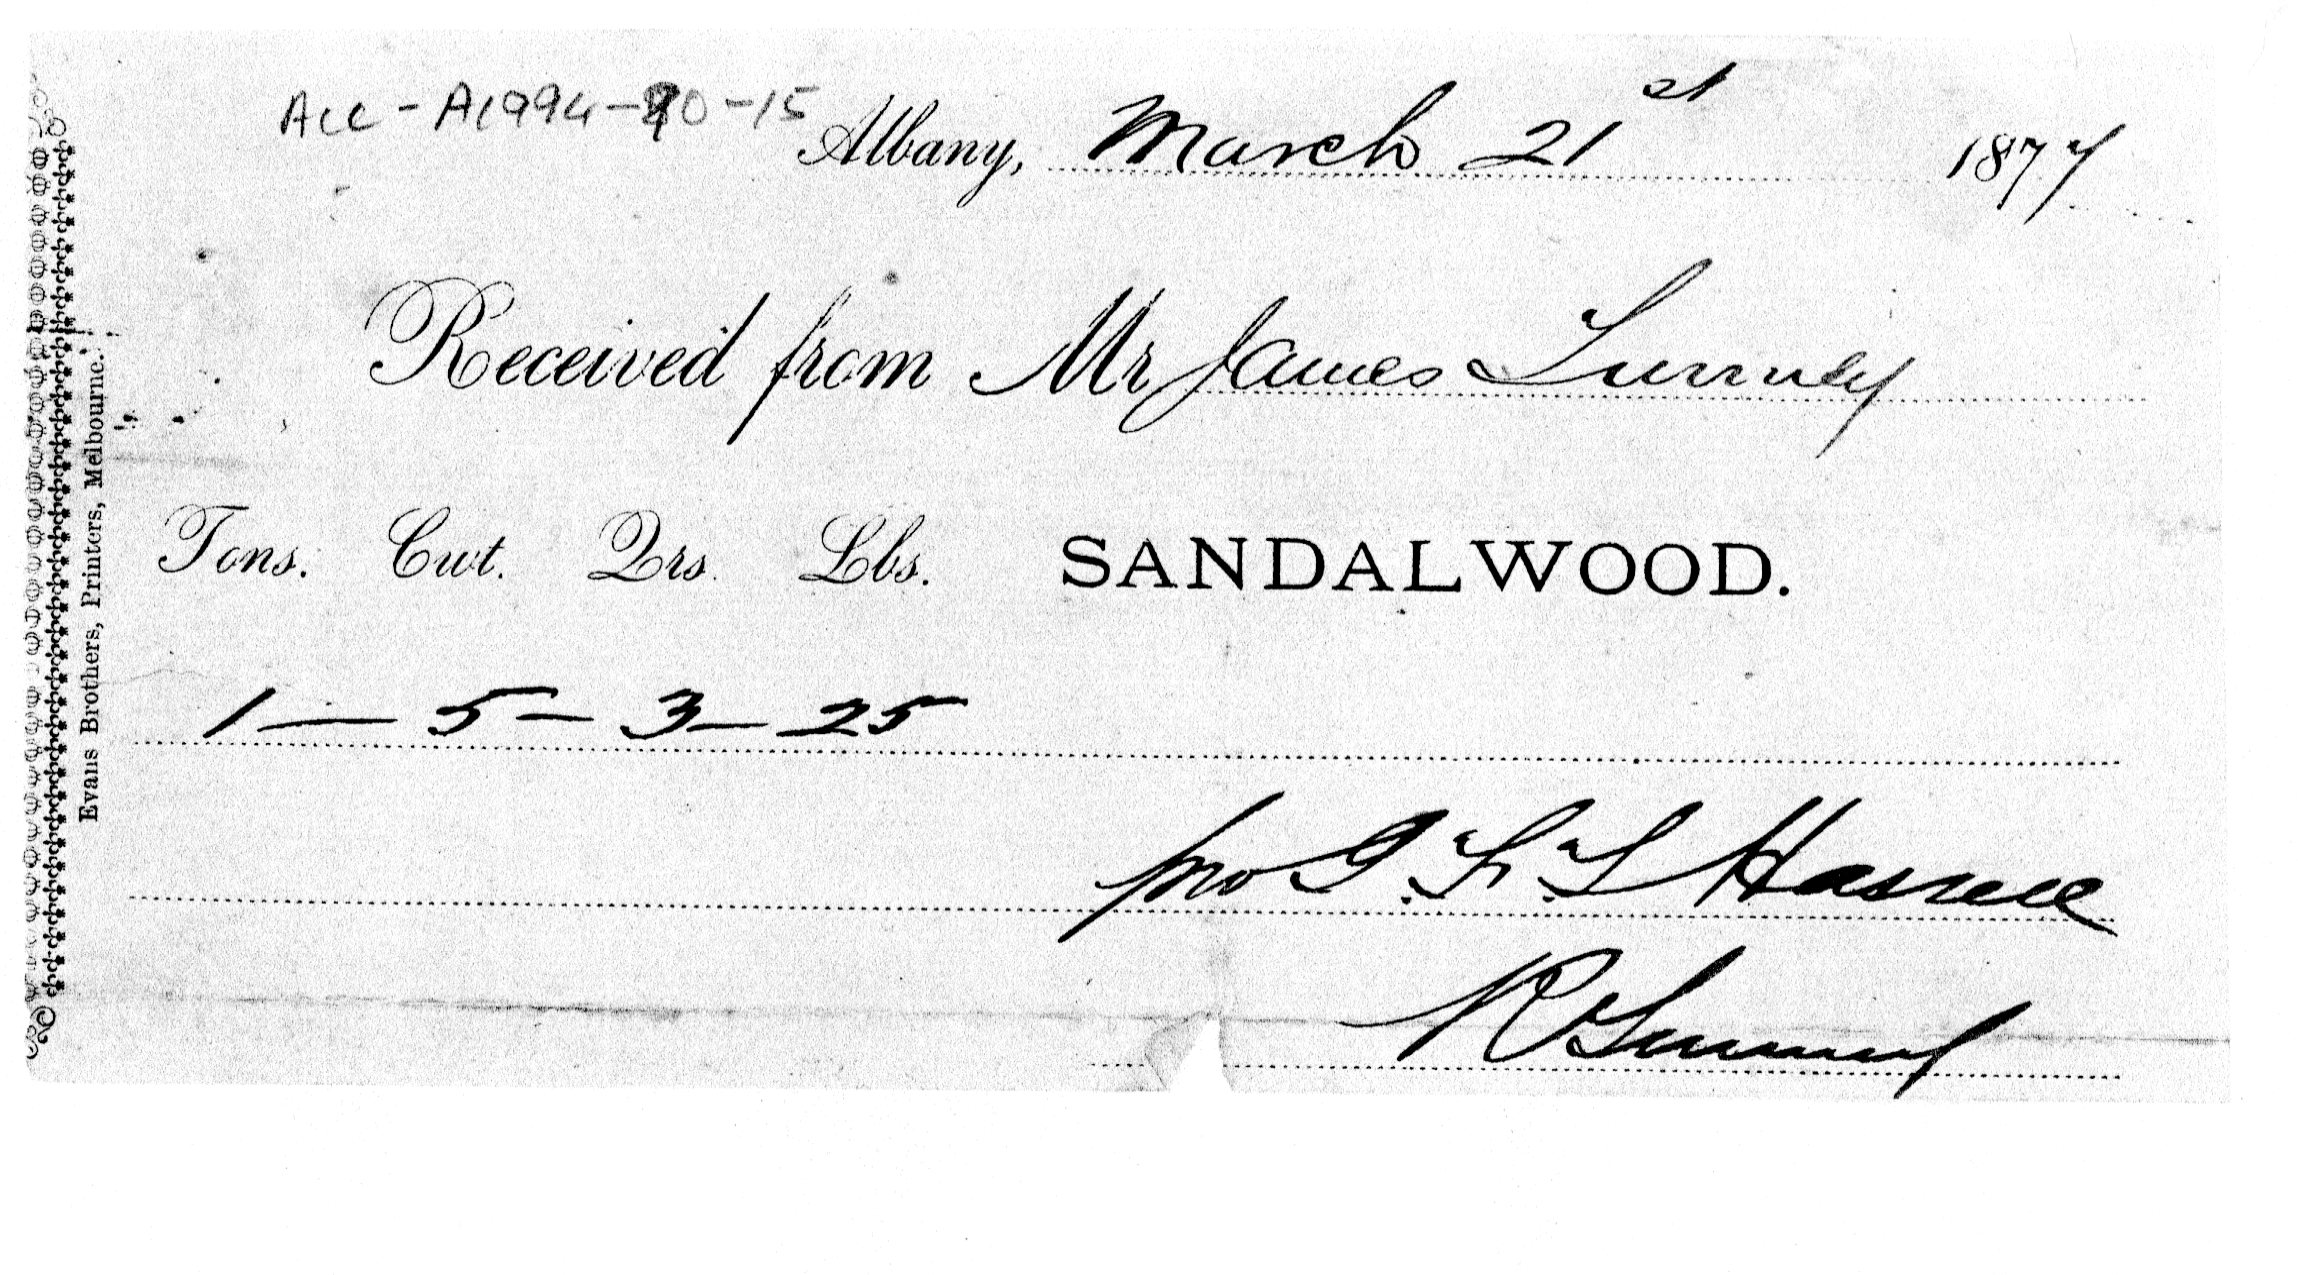 Acc - A1994-90-15
Albany, March 21st 1877
Received from Mr James
Tons. Cwt. Qrs. Lbs. SANDALWOOD.
1 — 5 — 3 — 25
pro J. F. T Hassell
Evans Brothers, Printers, Melbourne.